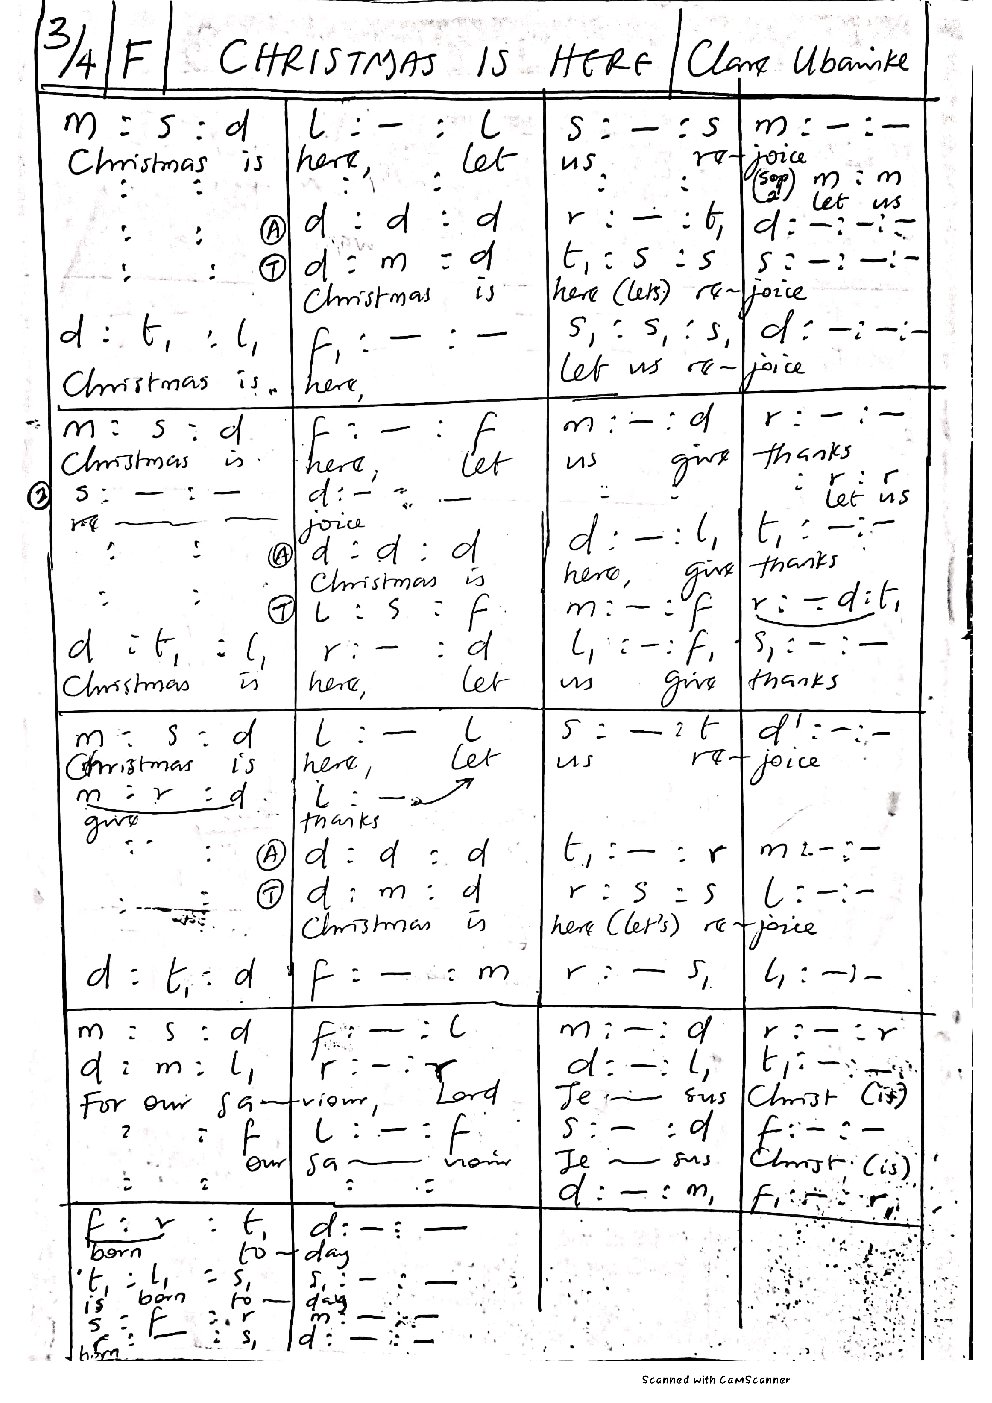 3/4 F CHRISTMAS IS HERE Clare Ubanike
m : s : d l : — : l s : — : s m : — : —
Christmas is here, let us re-joice
: : : : : : (Sop 2) m : m
let us
: : (A) d : d : d r : — : t, d : — : — : —
: : (T) d : m : d t, : s : s s : — : — : —
Christmas is here (lets) re-joice
d : t, : l, f, : — : — s, : s, : s, d : — : — : —
Christmas is here, let us re-joice
m : s : d f : — : f m : — : d r : — : —
Christmas is here, let us give thanks
(2) s : — : — d : — : — : : : r : r
re — — joice let us
: : (A) d : d : d d : — : l, t, : — : —
Christmas is here, give thanks
: : (T) l : s : f m : — : f r : — d : t,
d : t, : l, r : — : d l, : — : f, s, : — : —
Christmas is here, let us give thanks
m : s : d l : — l s : — : t d' : — : —
Christmas is here, let us re-joice
m : r : d l : —
give thanks
: : (A) d : d : d t, : — : r m : — : —
: : (T) d : m : d r : s : s l : — : —
Christmas is here (let's) re-joice
d : t, : d f : — : m r : — s, l, : — : —
m : s : d f : — : l m : — : d r : — : r
d : m : l, r : — : r d : — : l, t, : — : —
For our sa—viour, Lord Je — sus Christ (is)
: : f l : — : f s : — : d f : — : —
our sa — viour Je — sus Christ (is)
: : : : d : — : m, f, : — : r,
f : r : t, d : — : —
born to - day
t, : l, : s, s, : — : —
is born to - day
s : f : r m : — : —
: s, d : — : —
born
Scanned with CamScanner